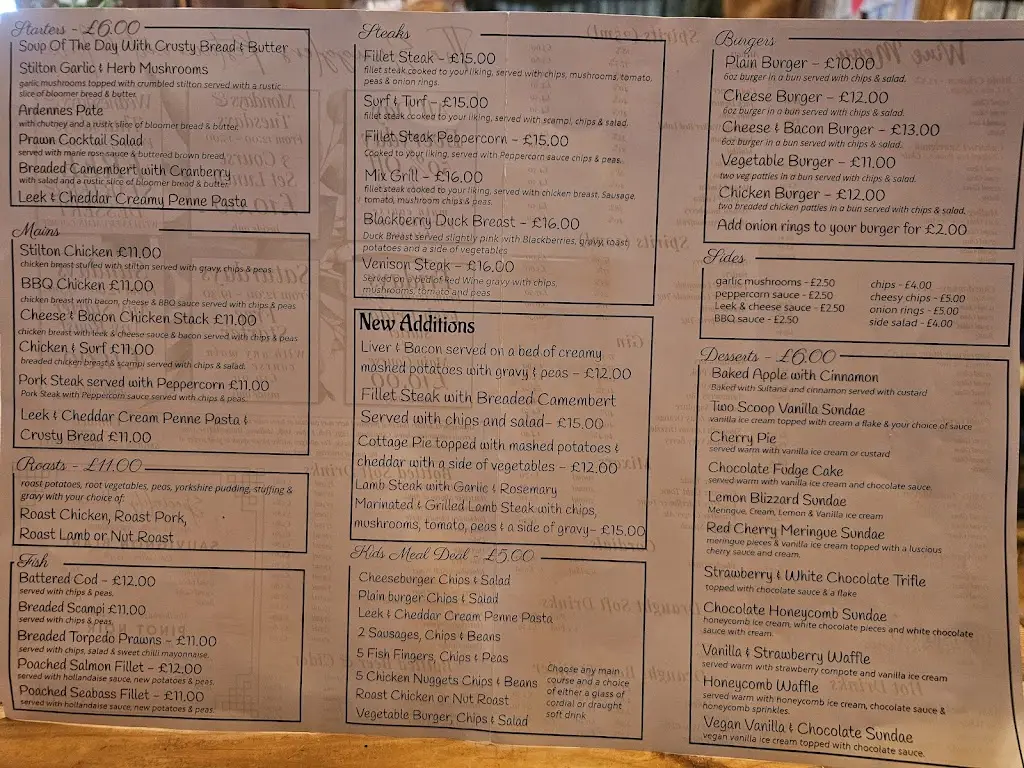 Starters - £6.00
Soup Of The Day With Crusty Bread & Butter
Stilton Garlic & Herb Mushrooms
garlic mushrooms topped with crumbled stilton served with a rustic
slice of bloomer bread & butter.
Ardennes Pate
with chutney and a rustic slice of bloomer bread & butter.
Prawn Cocktail Salad
served with marie rose sauce & buttered brown bread.
Breaded Camembert with Cranberry
with salad and a rustic slice of bloomer bread & butter.
Leek & Cheddar Creamy Penne Pasta
Mains
Stilton Chicken £11.00
chicken breast stuffed with stilton served with gravy, chips & peas.
BBQ Chicken £11.00
chicken breast with bacon, cheese & BBQ sauce served with chips & peas.
Cheese & Bacon Chicken Stack £11.00
chicken breast with leek & cheese sauce & bacon served with chips & peas
Chicken & Surf £11.00
breaded chicken breast & scampi served with chips & salad.
Pork Steak served with Peppercorn £11.00
Pork Steak with Peppercorn sauce served with chips & peas.
Leek & Cheddar Cream Penne Pasta &
Crusty Bread £11.00
Roasts - £11.00
roast potatoes, root vegetables, peas, yorkshire pudding, stuffing &
gravy with your choice of:
Roast Chicken, Roast Pork,
Roast Lamb or Nut Roast
Fish
Battered Cod - £12.00
served with chips & peas.
Breaded Scampi £11.00
served with chips & peas.
Breaded Torpedo Prawns - £11.00
served with chips, salad & sweet chilli mayonnaise.
Poached Salmon Fillet - £12.00
served with hollandaise sauce, new potatoes & peas.
Poached Seabass Fillet - £11.00
served with hollandaise sauce, new potatoes & peas.
Steaks
Fillet Steak - £15.00
fillet steak cooked to your liking, served with chips, mushrooms, tomato,
peas & onion rings.
Surf & Turf - £15.00
fillet steak cooked to your liking, served with scampi, chips & salad.
Fillet Steak Peppercorn - £15.00
Cooked to your liking, served with Peppercorn sauce chips & peas.
Mix Grill - £16.00
fillet steak cooked to your liking, served with chicken breast, Sausage,
tomato, mushroom chips & peas.
Blackberry Duck Breast - £16.00
Duck Breast served slightly pink with Blackberries, gravy, roast
potatoes and a side of vegetables
Venison Steak - £16.00
Served on a bed of Red Wine gravy with chips,
mushrooms, tomato and peas
New Additions
Liver & Bacon served on a bed of creamy
mashed potatoes with gravy & peas - £12.00
Fillet Steak with Breaded Camembert
Served with chips and salad- £15.00
Cottage Pie topped with mashed potatoes &
cheddar with a side of vegetables - £12.00
Lamb Steak with Garlic & Rosemary
Marinated & Grilled Lamb Steak with chips,
mushrooms, tomato, peas & a side of gravy- £15.00
Kids Meal Deal - £5.00
Cheeseburger Chips & Salad
Plain burger Chips & Salad
Leek & Cheddar Cream Penne Pasta
2 Sausages, Chips & Beans
5 Fish Fingers, Chips & Peas
5 Chicken Nuggets Chips & Beans
Roast Chicken or Nut Roast
Vegetable Burger, Chips & Salad
Choose any main
course and a choice
of either a glass of
cordial or draught
soft drink
Burgers
Plain Burger - £10.00
6oz burger in a bun served with chips & salad.
Cheese Burger - £12.00
6oz burger in a bun served with chips & salad.
Cheese & Bacon Burger - £13.00
6oz burger in a bun served with chips & salad.
Vegetable Burger - £11.00
two veg patties in a bun served with chips & salad.
Chicken Burger - £12.00
two breaded chicken patties in a bun served with chips & salad.
Add onion rings to your burger for £2.00
Sides
garlic mushrooms - £2.50
peppercorn sauce - £2.50
Leek & cheese sauce - £2.50
BBQ sauce - £2.50
chips - £4.00
cheesy chips - £5.00
onion rings - £5.00
side salad - £4.00
Desserts - £6.00
Baked Apple with Cinnamon
Baked with Sultana and cinnamon served with custard
Two Scoop Vanilla Sundae
vanilla ice cream topped with cream a flake & your choice of sauce
Cherry Pie
served warm with vanilla ice cream or custard
Chocolate Fudge Cake
served warm with vanilla ice cream and chocolate sauce.
Lemon Blizzard Sundae
Meringue, Cream, Lemon & Vanilla ice cream
Red Cherry Meringue Sundae
meringue pieces & vanilla ice cream topped with a luscious
cherry sauce and cream.
Strawberry & White Chocolate Trifle
topped with chocolate sauce & a flake
Chocolate Honeycomb Sundae
honeycomb ice cream, white chocolate pieces and white chocolate
sauce with cream.
Vanilla & Strawberry Waffle
served warm with strawberry compote and vanilla ice cream
Honeycomb Waffle
served warm with honeycomb ice cream, chocolate sauce &
honeycomb sprinkles.
Vegan Vanilla & Chocolate Sundae
vegan vanilla ice cream topped with chocolate sauce.